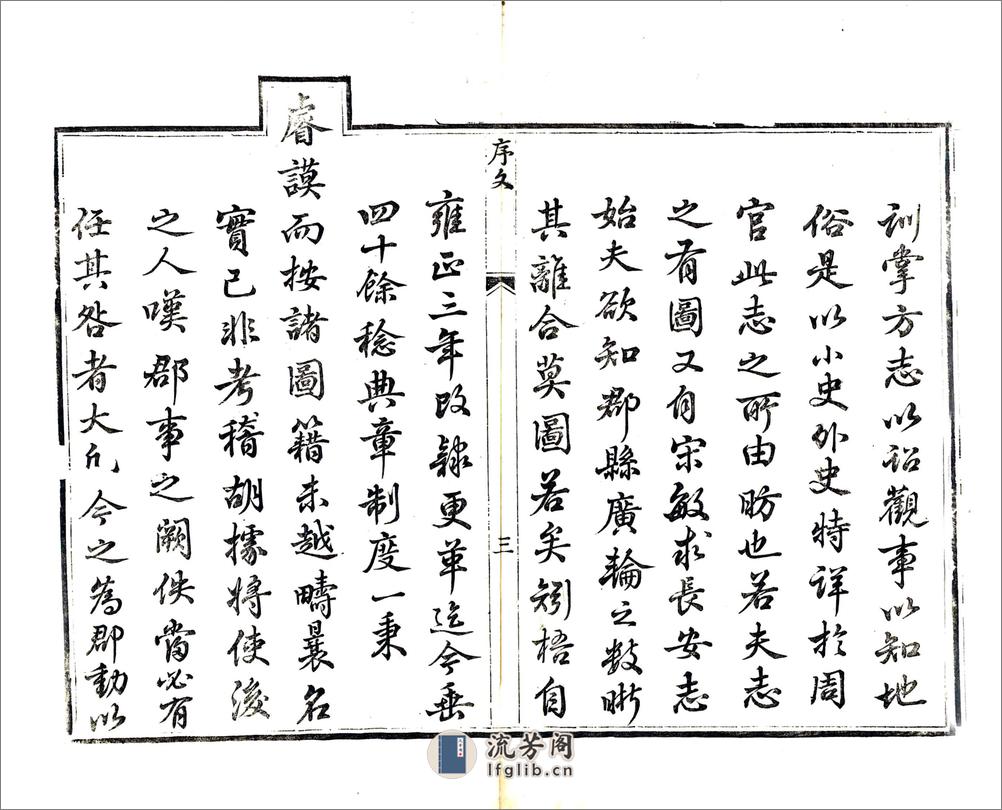 訓掌方志以詔觀事以知地
俗是以小史外史特詳於周
官此志之所由昉也若夫志
之有圖又自宋敏求長安志
始夫欲知郡縣廣輪之數晰
其離合莫圖若矣矧梧自
序文
三
雍正三年改隸更革迄今垂
四十餘稔典章制度一秉
睿謨而按諸圖籍未越疇曩名
實已非考稽胡據將使後
之人嘆郡事之闕佚當必有
任其咎者大凡今之為郡動以
流芳阁
lfglib.cn